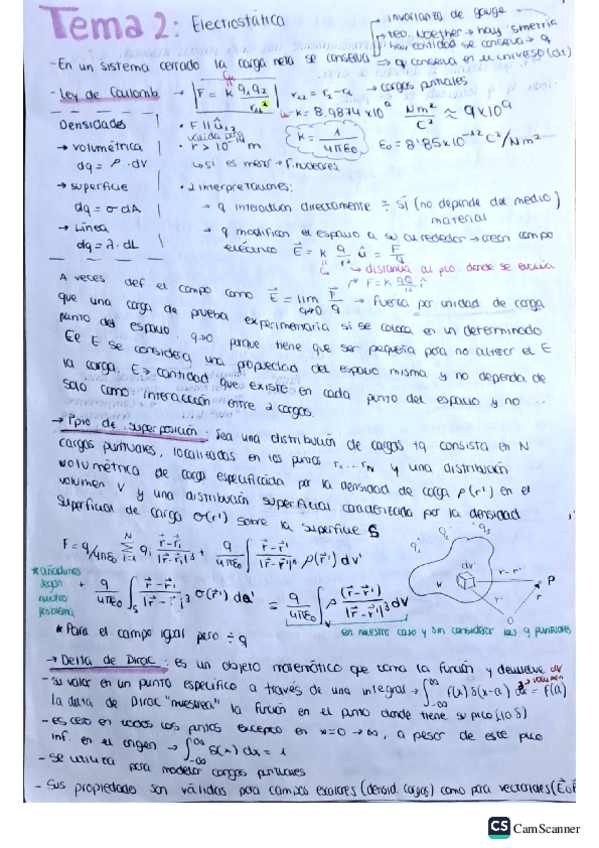 Tema 2: Electrostática
invarianza de gauge
teo. Noether → hay simetría
hay cantidad se conserva → q
- En un sistema cerrado la carga neta se conserva ⇒ q conserva en el universo (dt)
- Ley de Coulomb → F = K q₁q₂ / r₁₂² r₁₂ = r₂ - r₁ → cargas puntuales
K = 8,9874 x10⁹ Nm²/C² ≈ 9x10⁹
Densidades
• F || û₁₂
válida para
K = 1/4πε₀
ε₀ = 8'85x10⁻¹² C²/Nm²
→ volumétrica
• r > 10⁻¹⁴ m
dq = ρ · dV
↳ si es menor → f. nucleares
→ superficie
• 2 interpretaciones:
dq = σ dA
→ q interactuan directamente = sí (no depende del medio)
material
→ Línea
dq = λ · dL
→ q modifican el espacio a su alrededor → crean campo
eléctrico E⃗ = K q/r² û = F⃗/q
→ distancia al pto. donde se evalúa
A veces def el campo como E⃗ = lim q→0 F⃗/q → fuerza por unidad de carga
que una carga de prueba experimentaría si se coloca en un determinado
punto del espacio. q→0 porque tiene que ser pequeña para no alterar el E
El E se considera una propiedad del espacio misma y no dependa de
la carga. E → cantidad que existe en cada punto del espacio y no
solo como interacción entre 2 cargas.
→ Ppio de superposición: Sea una distribución de cargas +q consista en N
cargas puntuales, localizadas en los puntos r₁... r_N y una distribución
volumétrica de carga especificada por la densidad de carga ρ(r') en el
volumen V y una distribución superficial caracterizada por la densidad
superficial de carga σ(r') sobre la superficie S
F = q/4πε₀ Σ_{i=1}^{N} q_i (r⃗-r⃗_i)/|r⃗-r⃗_i|³ + q/4πε₀ ∫ (r⃗-r⃗')/|r⃗-r⃗'|³ ρ(r⃗') dv'
* añadimos
según
nuestro
problema
+ q/4πε₀ ∫_S (r⃗-r⃗')/|r⃗-r⃗'|³ σ(r⃗') da' = q/4πε₀ ∫ ρ (r⃗-r⃗')/|r⃗-r⃗'|³ dV
en nuestro caso y sin considerar las q puntuales
dv'
r - r'
P
V
r'
r
O
* Para el campo igual pero ÷ q
→ Delta de Dirac: es un objeto matemático que toma la función y devuelve
- su valor en un punto específico a través de una integral → ∫_{-∞}^{∞} f(x) δ(x-a) dx = f(a)
la delta de Dirac "muestrea" la función en el punto donde tiene su pico
- es cero en todos los puntos excepto en x=0 → ∞, a pesar de este pico
inf. en el origen → ∫_{-∞}^{∞} δ(x) dx = 1
- Se utiliza para modelar cargas puntuales
- Sus propiedades son válidas para campos escalares (densid. cargas) como para vectoriales
CS CamScanner